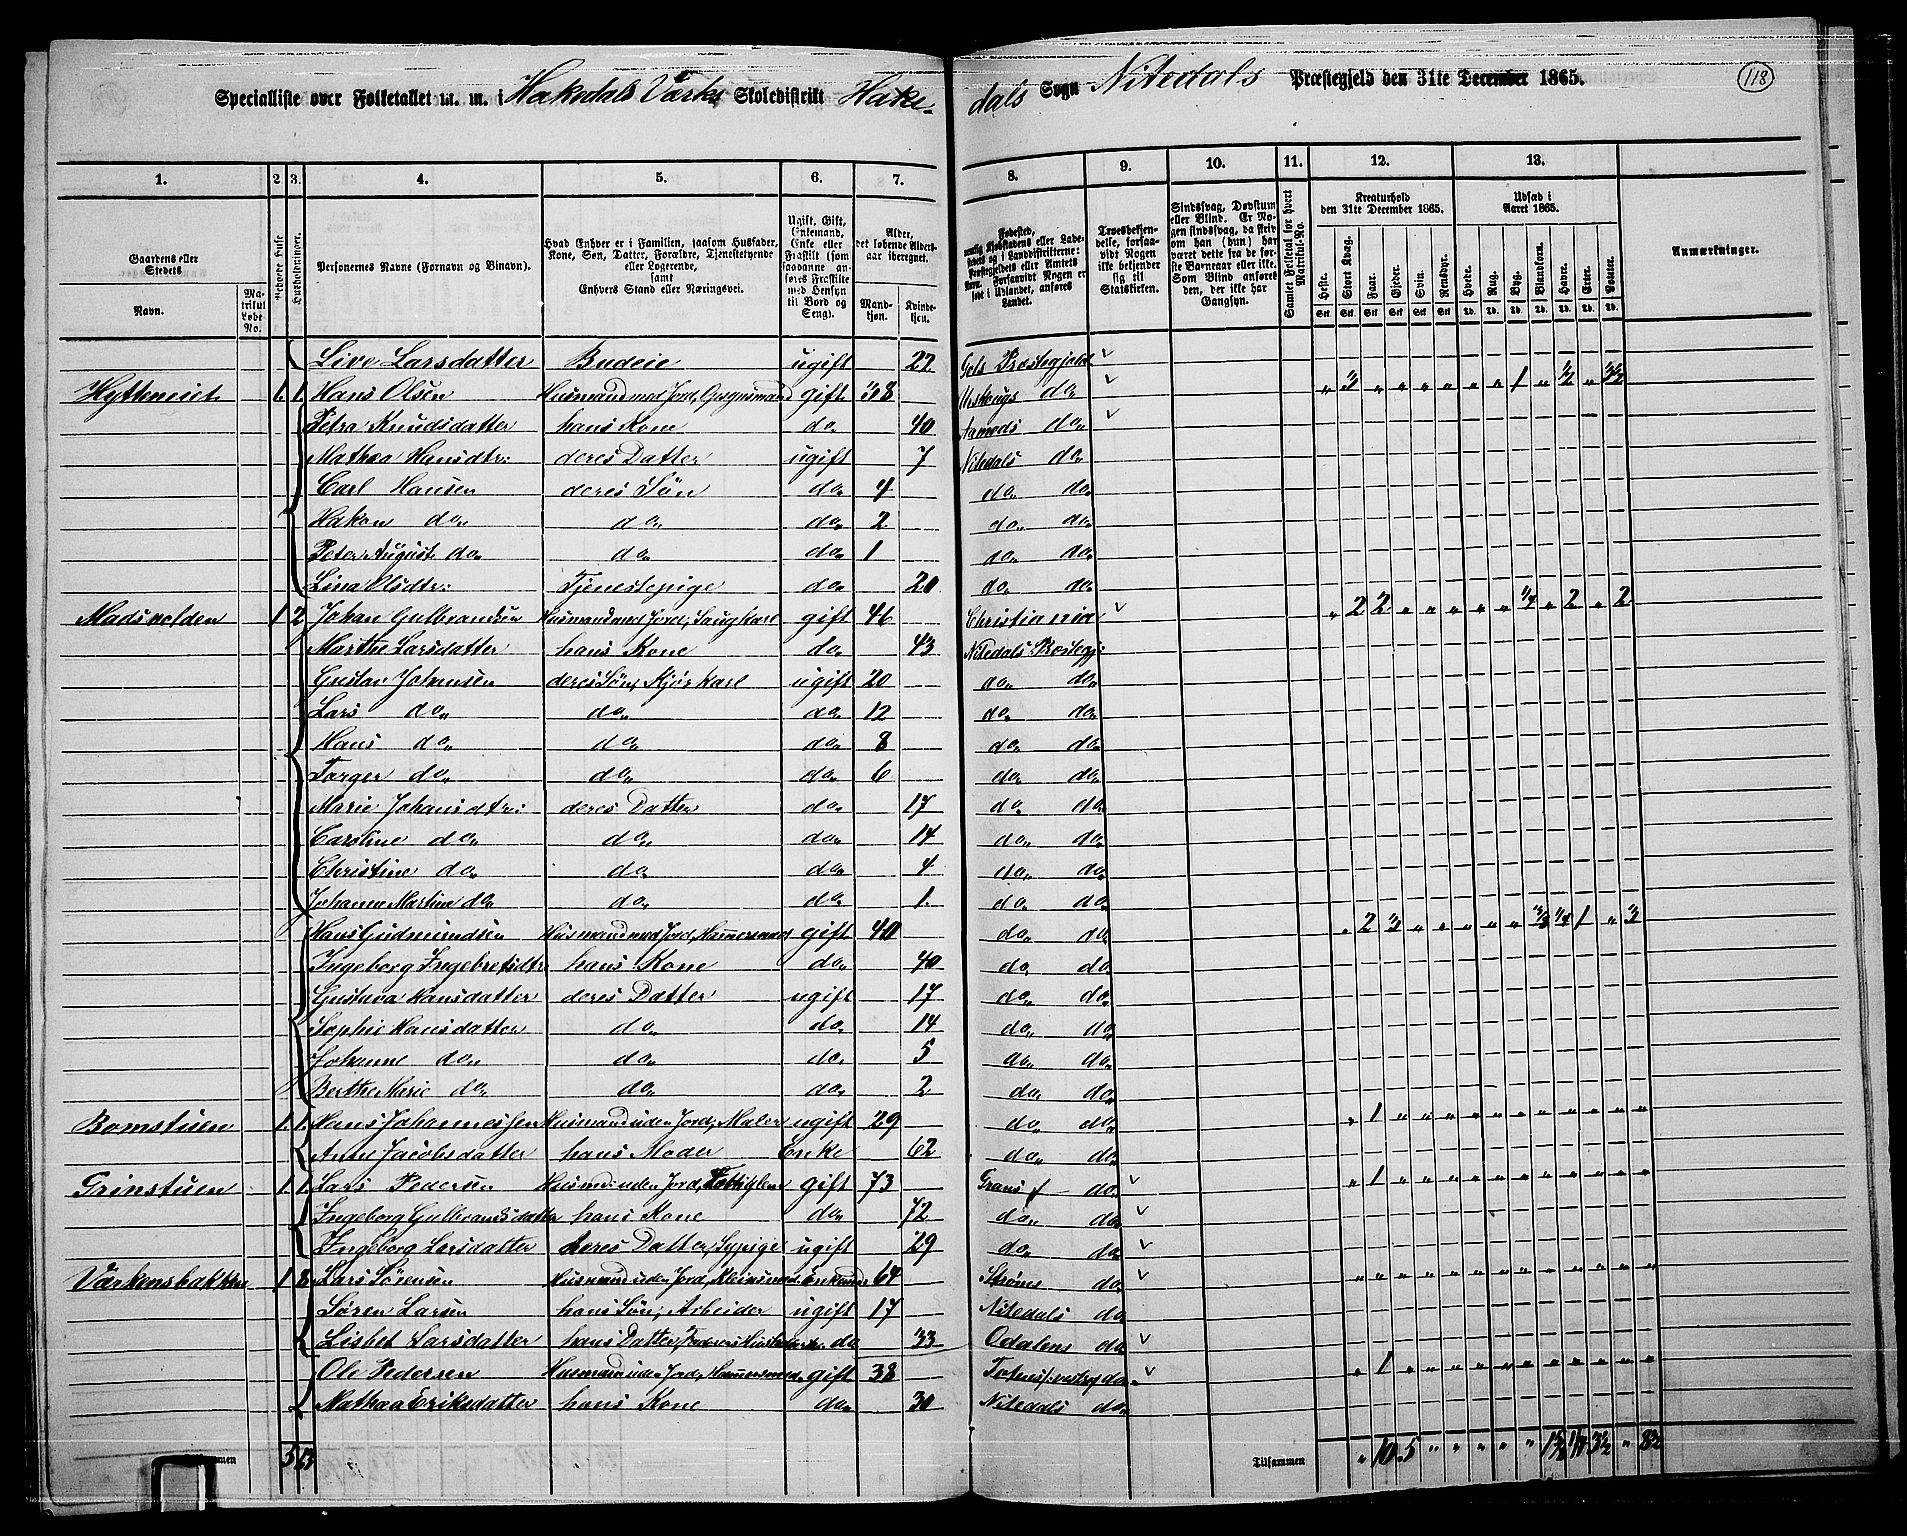 Specialliste over Folketallet m. m. i Hakedals Værks Skoledistrikt Hake-
dals Sogn Nitedals Præstegjeld den 31te December 1865. 118
1. 2. 3. 4. 5. 6. 7. 8. 9. 10. 11. 12. 13.
Gaardens eller Stedets
Navn. Matrikul Løbe-No.
Beboede Huse
Husholdninger.
Personernes Navne (Fornavn og Binavn).
Hvad Enhver er i Familien, saasom Husfader, Kone, Søn, Datter, Forældre, Tjenestetyende eller Logerende, samt Enhvers Stand eller Næringsvei.
Ugift, Gift, Enkemand, Enke eller Fraskilt (som saadanne anføres Fraskilte med Hensyn til Bord og Seng).
Alder, det løbende Alders-aar iberegnet.
Mandkjøn. Kvindekjøn.
Fødested,
Troesbekjendelse, forsaavidt Nogen ikke bekjender sig til Statskirken.
Sindssvag, Døvstum eller Blind. Er Nogen sindssvag, da skrives om han (hun) har været dette fra de første Barneaar eller ikke. Som Blind anføres den, der ikke har Gangsyn.
Samlet Folketal for hvert Matrikul-No.
Kreaturhold den 31te December 1865.
Heste. Stort Kvæg. Faar. Gjeder. Svin. Rensdyr.
Udsæd i Aaret 1865.
Hvede. Rug. Byg. Blandkorn. Havre. Erter. Poteter.
Anmærkninger.
Live Larsdatter Budeie ugift 22 Gols Præstegjeld
Hytteneiet 1 1 Hans Olsen Husmand med Jord, gift 38 Urskougs do
Petra Knudsdatter hans Kone do 40 do
Mathea Hansdtr: deres Datter ugift 7 Nitedals do
Carl Hansen deres Søn do 4 do do
Hakon do do do 2 do do
Peter August do do do 1 do do
Lina Olsdtr: Tjenestepige do 20 do do
Madsvolden 1 2 Johan Gulbrandsen Husmand med Jord, Saugkarl gift 46 Christiania " 2 2 " " " " " 1/4 " 2 " 2
Marthe Larsdatter hans Kone do 43 Nitedals Præstegj:
Gustav Johansen deres Søn, Kjørkarl ugift 20 do do
Lars do do do 12 do do
Hans do do do 8 do do
Torger do do do 6 do do
Marie Johansdtr: deres Datter do 17 do do
Caroline do do do 14 do do
Christine do do do 4 do do
Johanne Martine do do do 1 do do
Hans Gudmundsen Husmand med Jord, Hammersmed gift 40 do do
Ingeborg Ingebretsdtr hans Kone do 40 do do
Gustava Hansdatter deres Datter ugift 17 do do
Sophie Hansdatter do do 14 do do
Johanne do do do 5 do do
Berthe Marie do do do 2 do do
Bomstuen 1 1 Hans Johannessen Husmand uden Jord, Maler ugift 29 do do " 1 " " " " " " " " " " "
Anne Jacobsdatter hans Moder Enke 62 do do
Grinstuen 1 1 Lars Pedersen Husmd: uden Jord, gift 73 Grans do " 1 " " " " " " " " " " "
Ingeborg Gulbrandsdatter hans Kone do 72 do do
Ingeborg Larsdatter deres Datter, Sypige ugift 29 do do
Værkensbakken 1 8 Lars Sørensen Husmand uden Jord, Enkemd 64 Strøms do " " " " " " " " " " " " "
Søren Larsen hans Søn; Arbeider ugift 17 Nitedals do
Lisbet Larsdatter hans Datter, do 33 Odalens do
Ole Pedersen Husmand uden Jord, Hammersmed gift 38 do " 1 " " " " " " " " " " "
Mathea Eriksdatter hans Kone do 30 Nitedals do
5 13 Tilsammen " 10 5 " " " " "